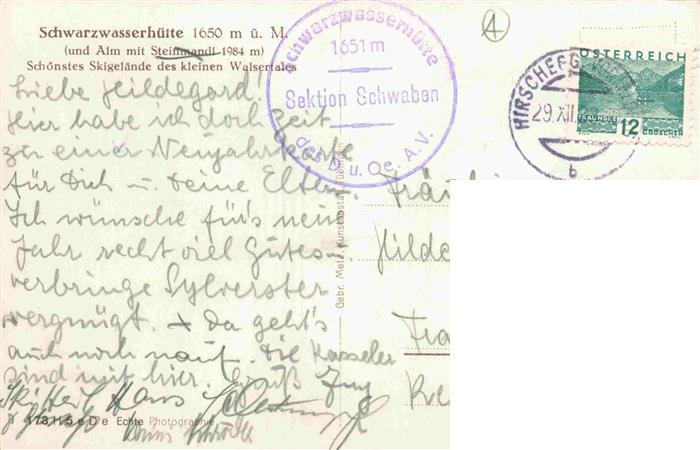 Schwarzwasserhütte 1650 m ü. M.
(und Alm mit Steinmandl 1984 m)
Schönstes Skigelände des kleinen Walsertales
Schwarzwasserhütte
1651 m
Sektion Schwaben
des D. u. Oe. A.V.
HIRSCHEGG
29.XII
b
ÖSTERREICH
12
GROSCHEN
Liebe Hildegard!
Hier habe ich doch Zeit
zu einer Neujahrskarte
für Dich u. Deine Eltern.
Ich wünsche für's neue
Jahr recht viel Gutes u.
verbringe Sylverster
vergnügt. + da geht's
auch noch nauf. Die Kasseler
sind mit hier. Gruß
Ski Heil Hans
Gebr. Metz, Kunstanstalt, Tübingen
173 H 5 e D e Echte Photographie